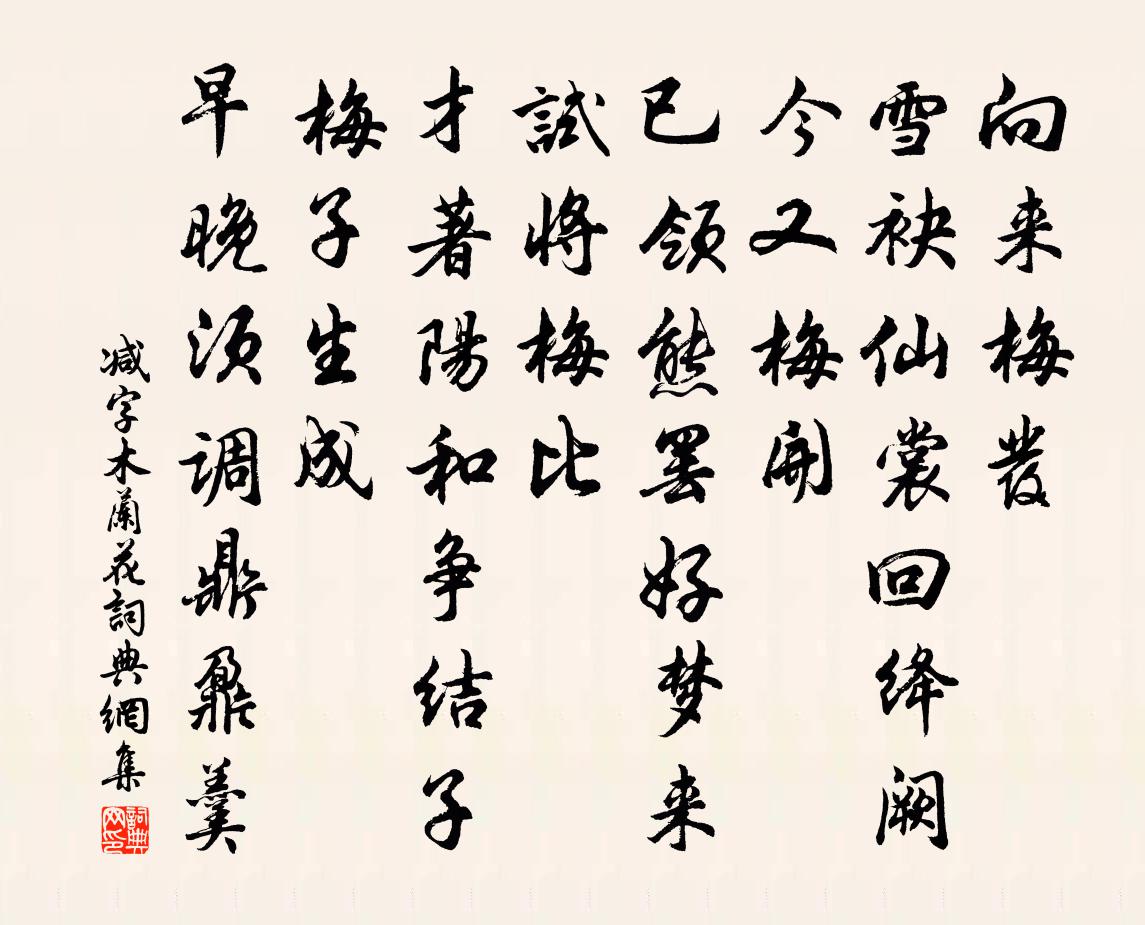 向来梅發
雪袂仙裳回绛阙
今又梅開
已领熊罴好梦来
試將梅比
才著陽和争结子
梅子生成
早晚须调鼎鼐羹
减字木蘭花詞典網集
詞典网印